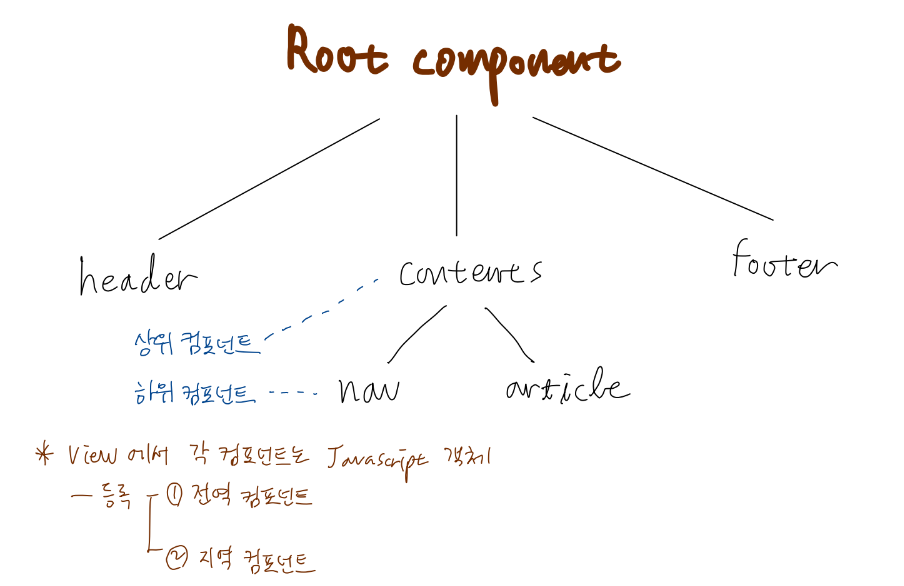 Root component
header
contents
footer
상위 컴포넌트
하위 컴포넌트
nav
article
* View에서 각 컴포넌트는 Javascript 객체
- 등록 ① 전역 컴포넌트
② 지역 컴포넌트